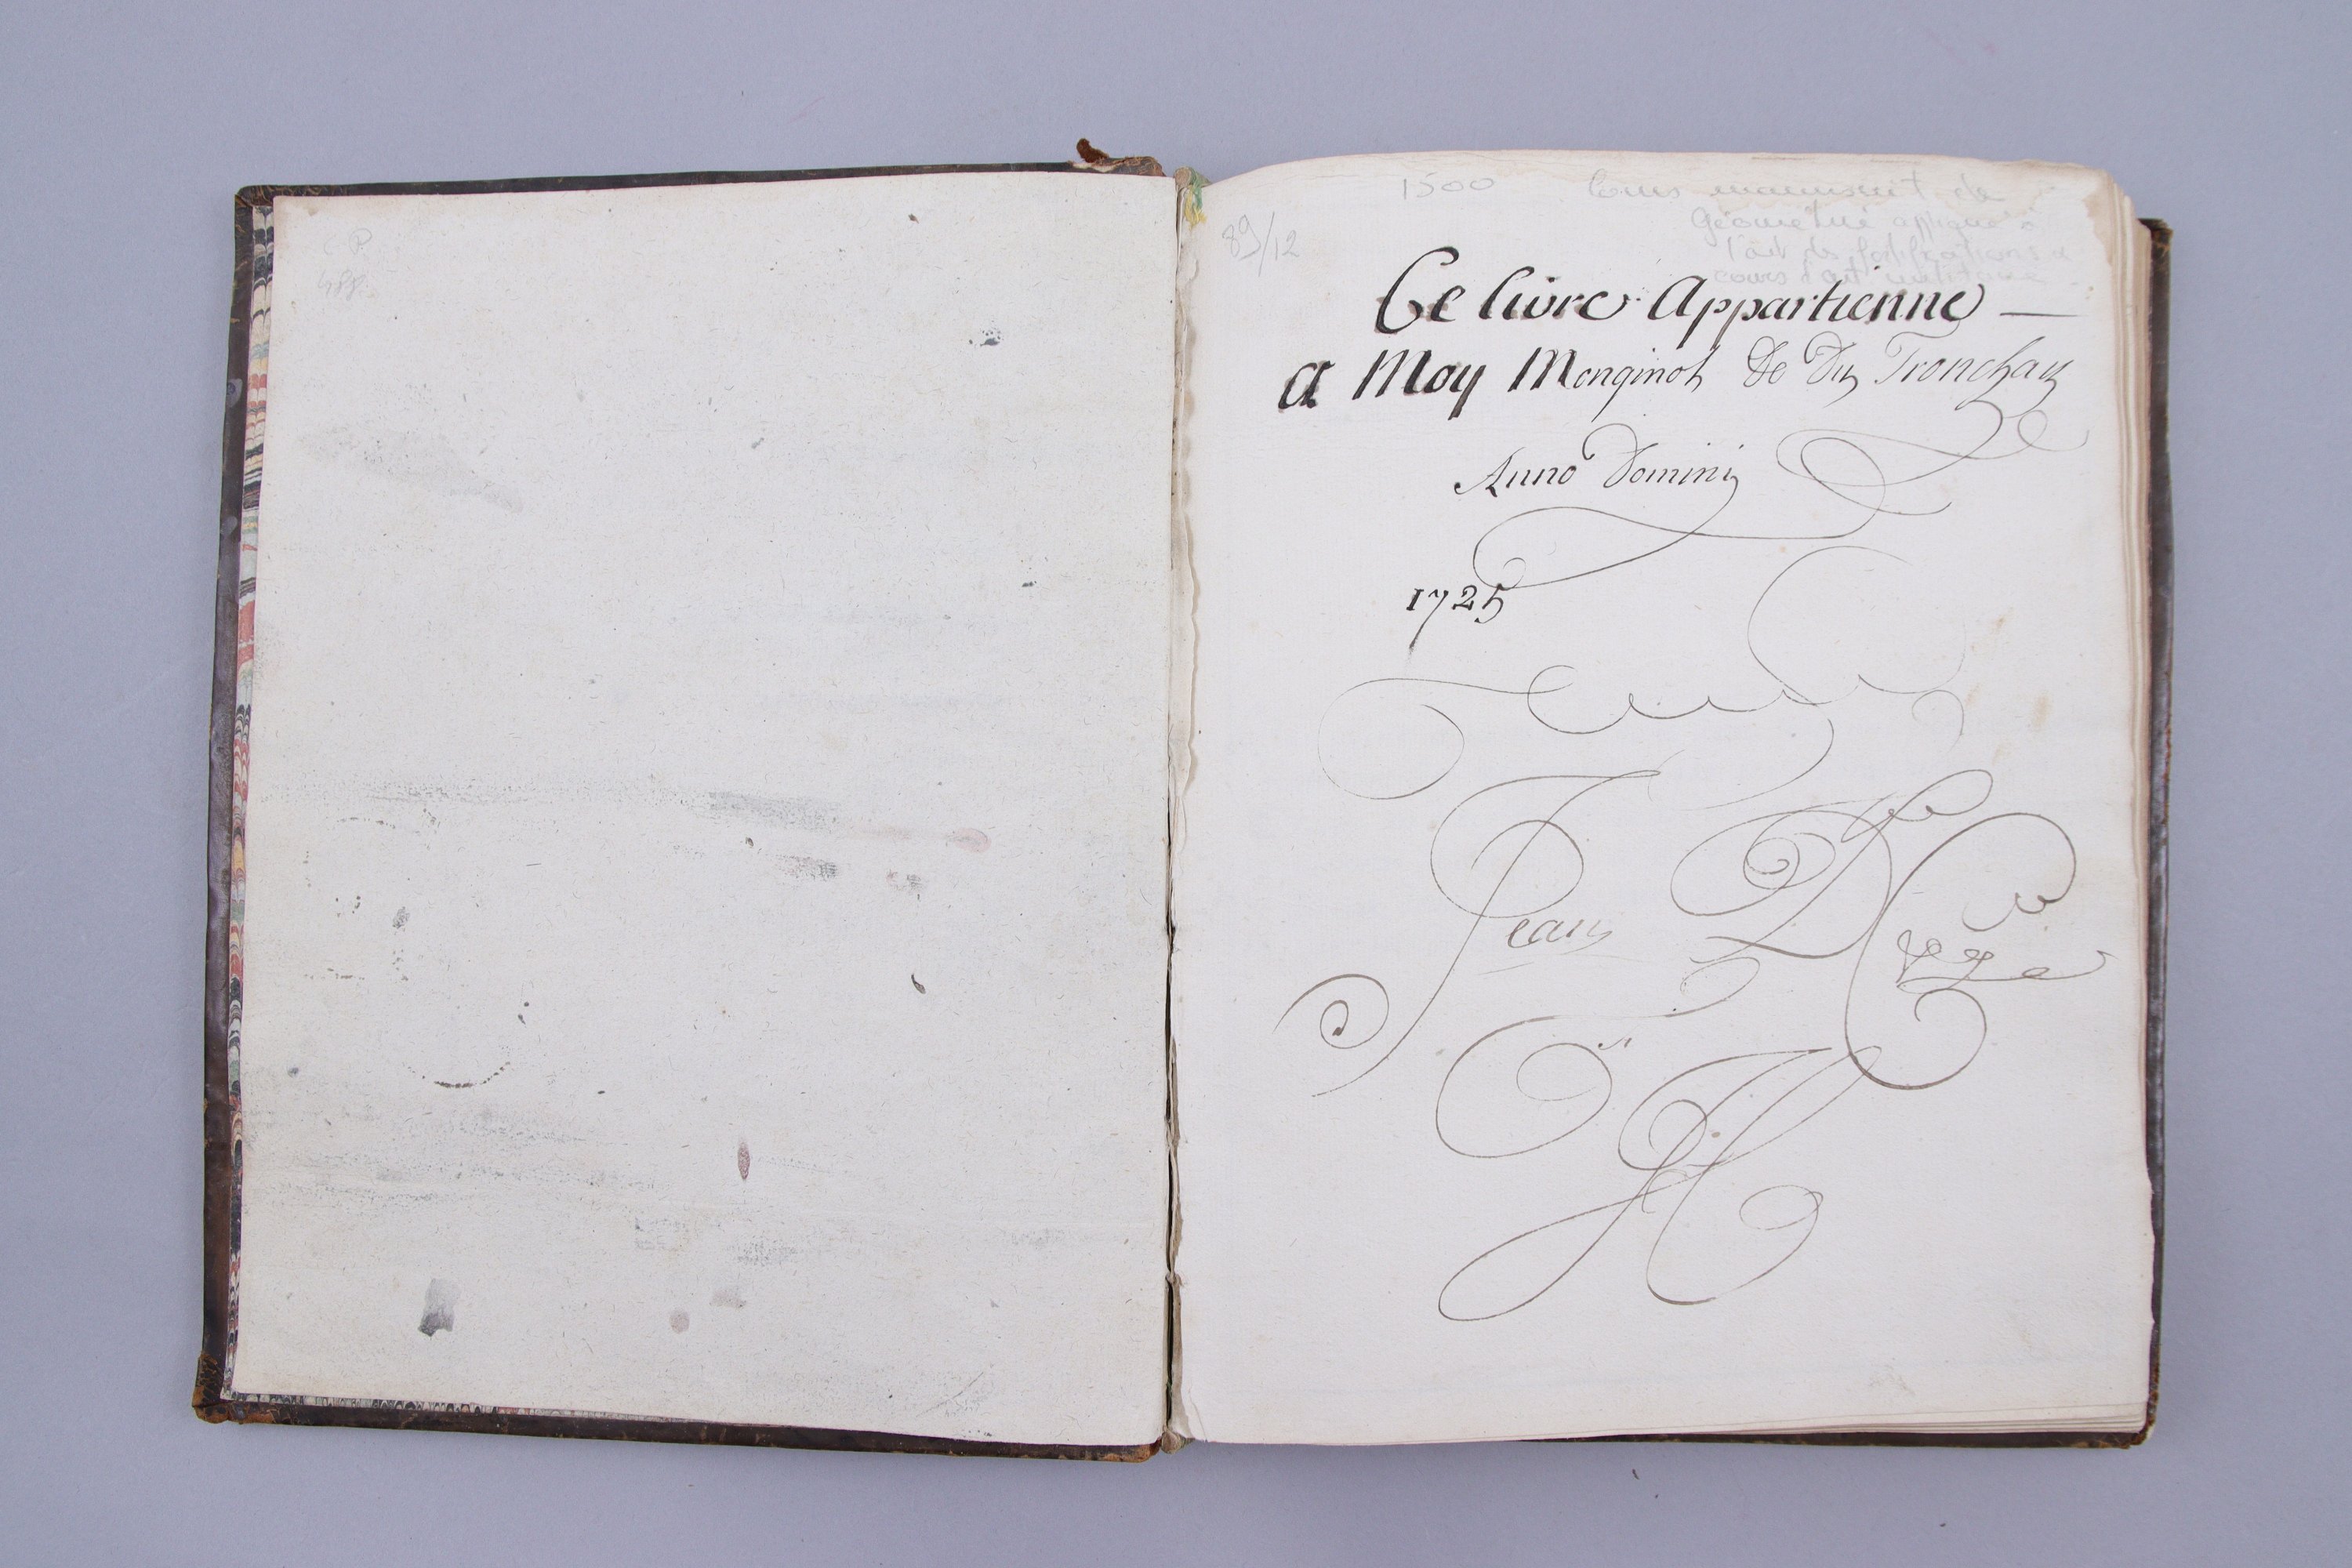 C.P.
1500 Cours manuscrit de
Géométrie appliqué à
l'art des fortifications &
cours d'art militaire
89/12
Ce livre Appartienne —
a Moy Monginot De Du Tronchay
Anno Domini
1725
Jean